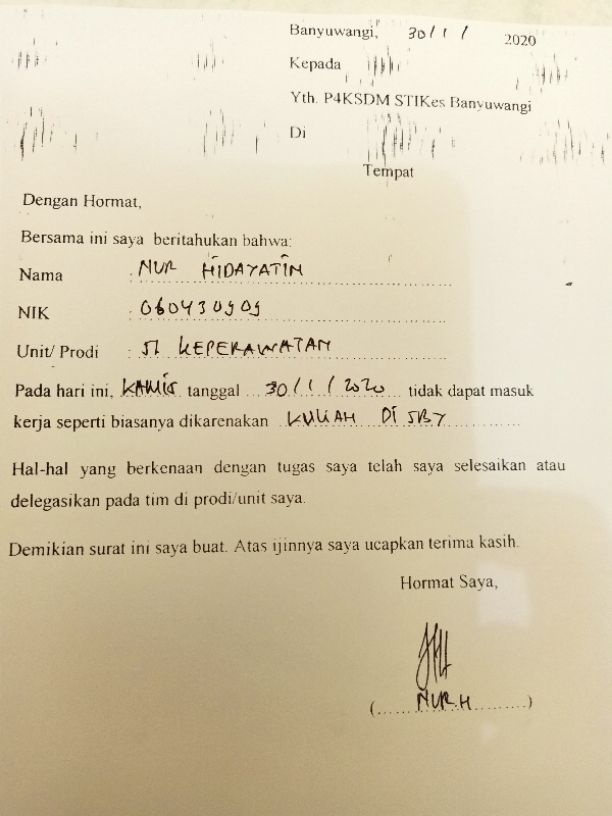 Banyuwangi, 30/1/ 2020
Kepada
Yth. P4KSDM STIKes Banyuwangi
Di
Tempat
Dengan Hormat,
Bersama ini saya beritahukan bahwa:
Nama : NUR HIDAYATIN
NIK : 060430909
Unit/ Prodi : S1 KEPERAWATAN
Pada hari ini, KAMIS tanggal 30/1/2020 tidak dapat masuk
kerja seperti biasanya dikarenakan KULIAH DI SBY
Hal-hal yang berkenaan dengan tugas saya telah saya selesaikan atau
delegasikan pada tim di prodi/unit saya.
Demikian surat ini saya buat. Atas ijinnya saya ucapkan terima kasih.
Hormat Saya,
(...NUR.H...)